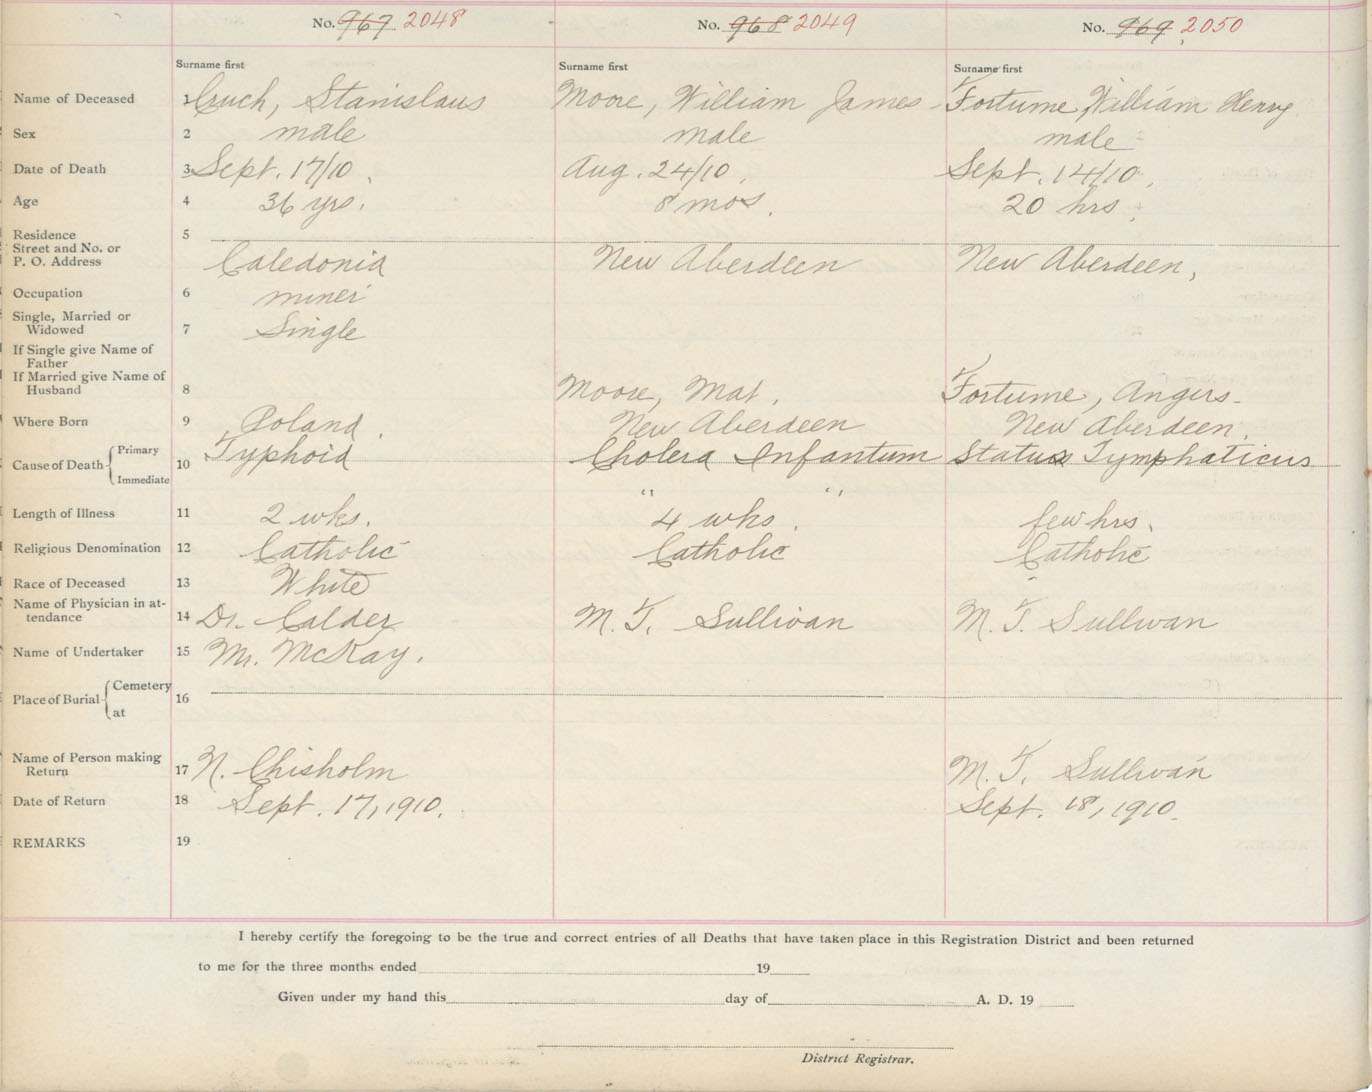 No. 967 2048 No. 968 2049 No. 969 2050
Surname first Surname first Surname first
Name of Deceased 1 Cruch, Stanislaus Moore, William James Fortume, William Henry
Sex 2 male male male
Date of Death 3 Sept. 17/10. Aug. 24/10. Sept. 14/10.
Age 4 36 yrs. 8 mos. 20 hrs.
Residence 5
Street and No. or
P. O. Address Caledonia New Aberdeen New Aberdeen,
Occupation 6 miner
Single, Married or
Widowed 7 Single
If Single give Name of
Father
If Married give Name of
Husband 8 Moore, Mat. Fortume, Angus
Where Born 9 Poland. New Aberdeen New Aberdeen.
Cause of Death Primary 10 Typhoid Cholera Infantum Status Tymphaticus
Immediate " "
Length of Illness 11 2 wks. 4 wks. few hrs.
Religious Denomination 12 Catholic Catholic Catholic
Race of Deceased 13 White
Name of Physician in at-
tendance 14 Dr. Calder M. T. Sullivan M. T. Sullivan
Name of Undertaker 15 Mr. McKay.
Place of Burial Cemetery 16
at
Name of Person making
Return 17 N. Chisholm M. T. Sullivan
Date of Return 18 Sept. 17, 1910. Sept. 18, 1910.
REMARKS 19
I hereby certify the foregoing to be the true and correct entries of all Deaths that have taken place in this Registration District and been returned
to me for the three months ended 19
Given under my hand this day of A. D. 19
District Registrar.